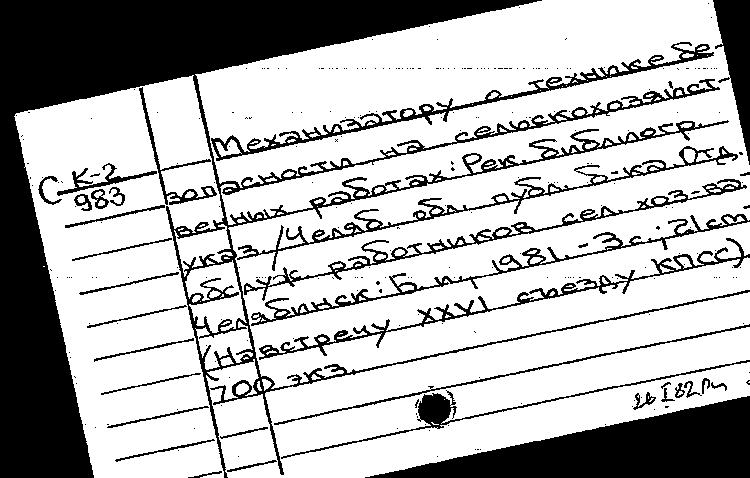 Механизатору о технике бе-
С К-2
983
зопасности на сельскохозяйст-
венных работах: Рек. библиогр.
указ. / Челяб. обл. публ. б-ка. Отд.
обслуж работников сел. хоз-ва-
Челябинск: Б. и., 1981. - 3 с.; 21 cm
(Навстречу XXVI съезду КПСС).
700 экз.
26 I 82